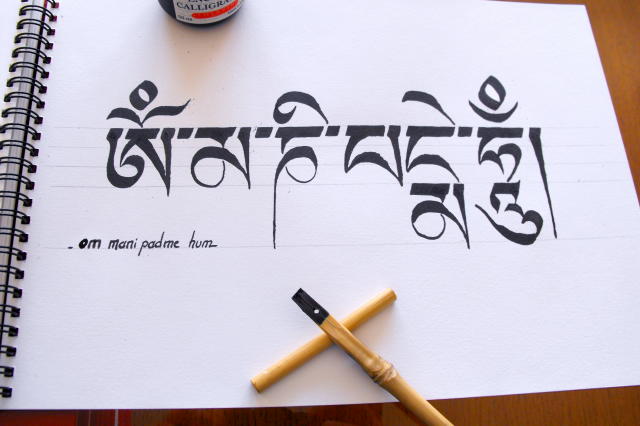 CALLIGRA
ཨོཾ་མ་ཎི་པ་དྨེ་ཧཱུྃ།
- om mani padme hum